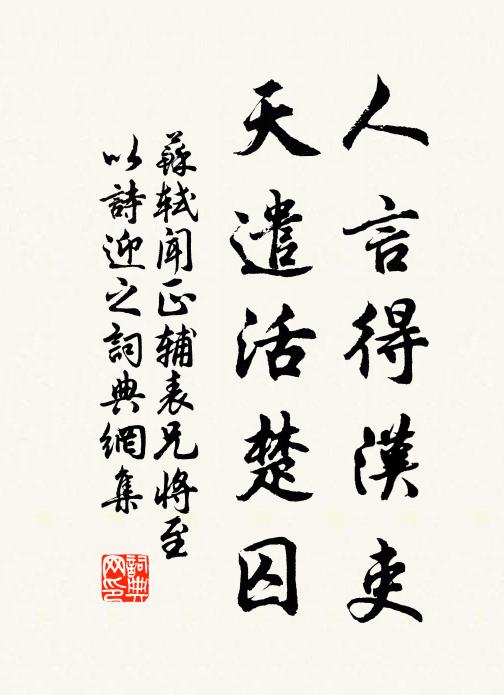 人言得漢吏
天遣活楚囚
蘇軾聞正輔表兄將至
以詩迎之詞典網集
詞典
网印